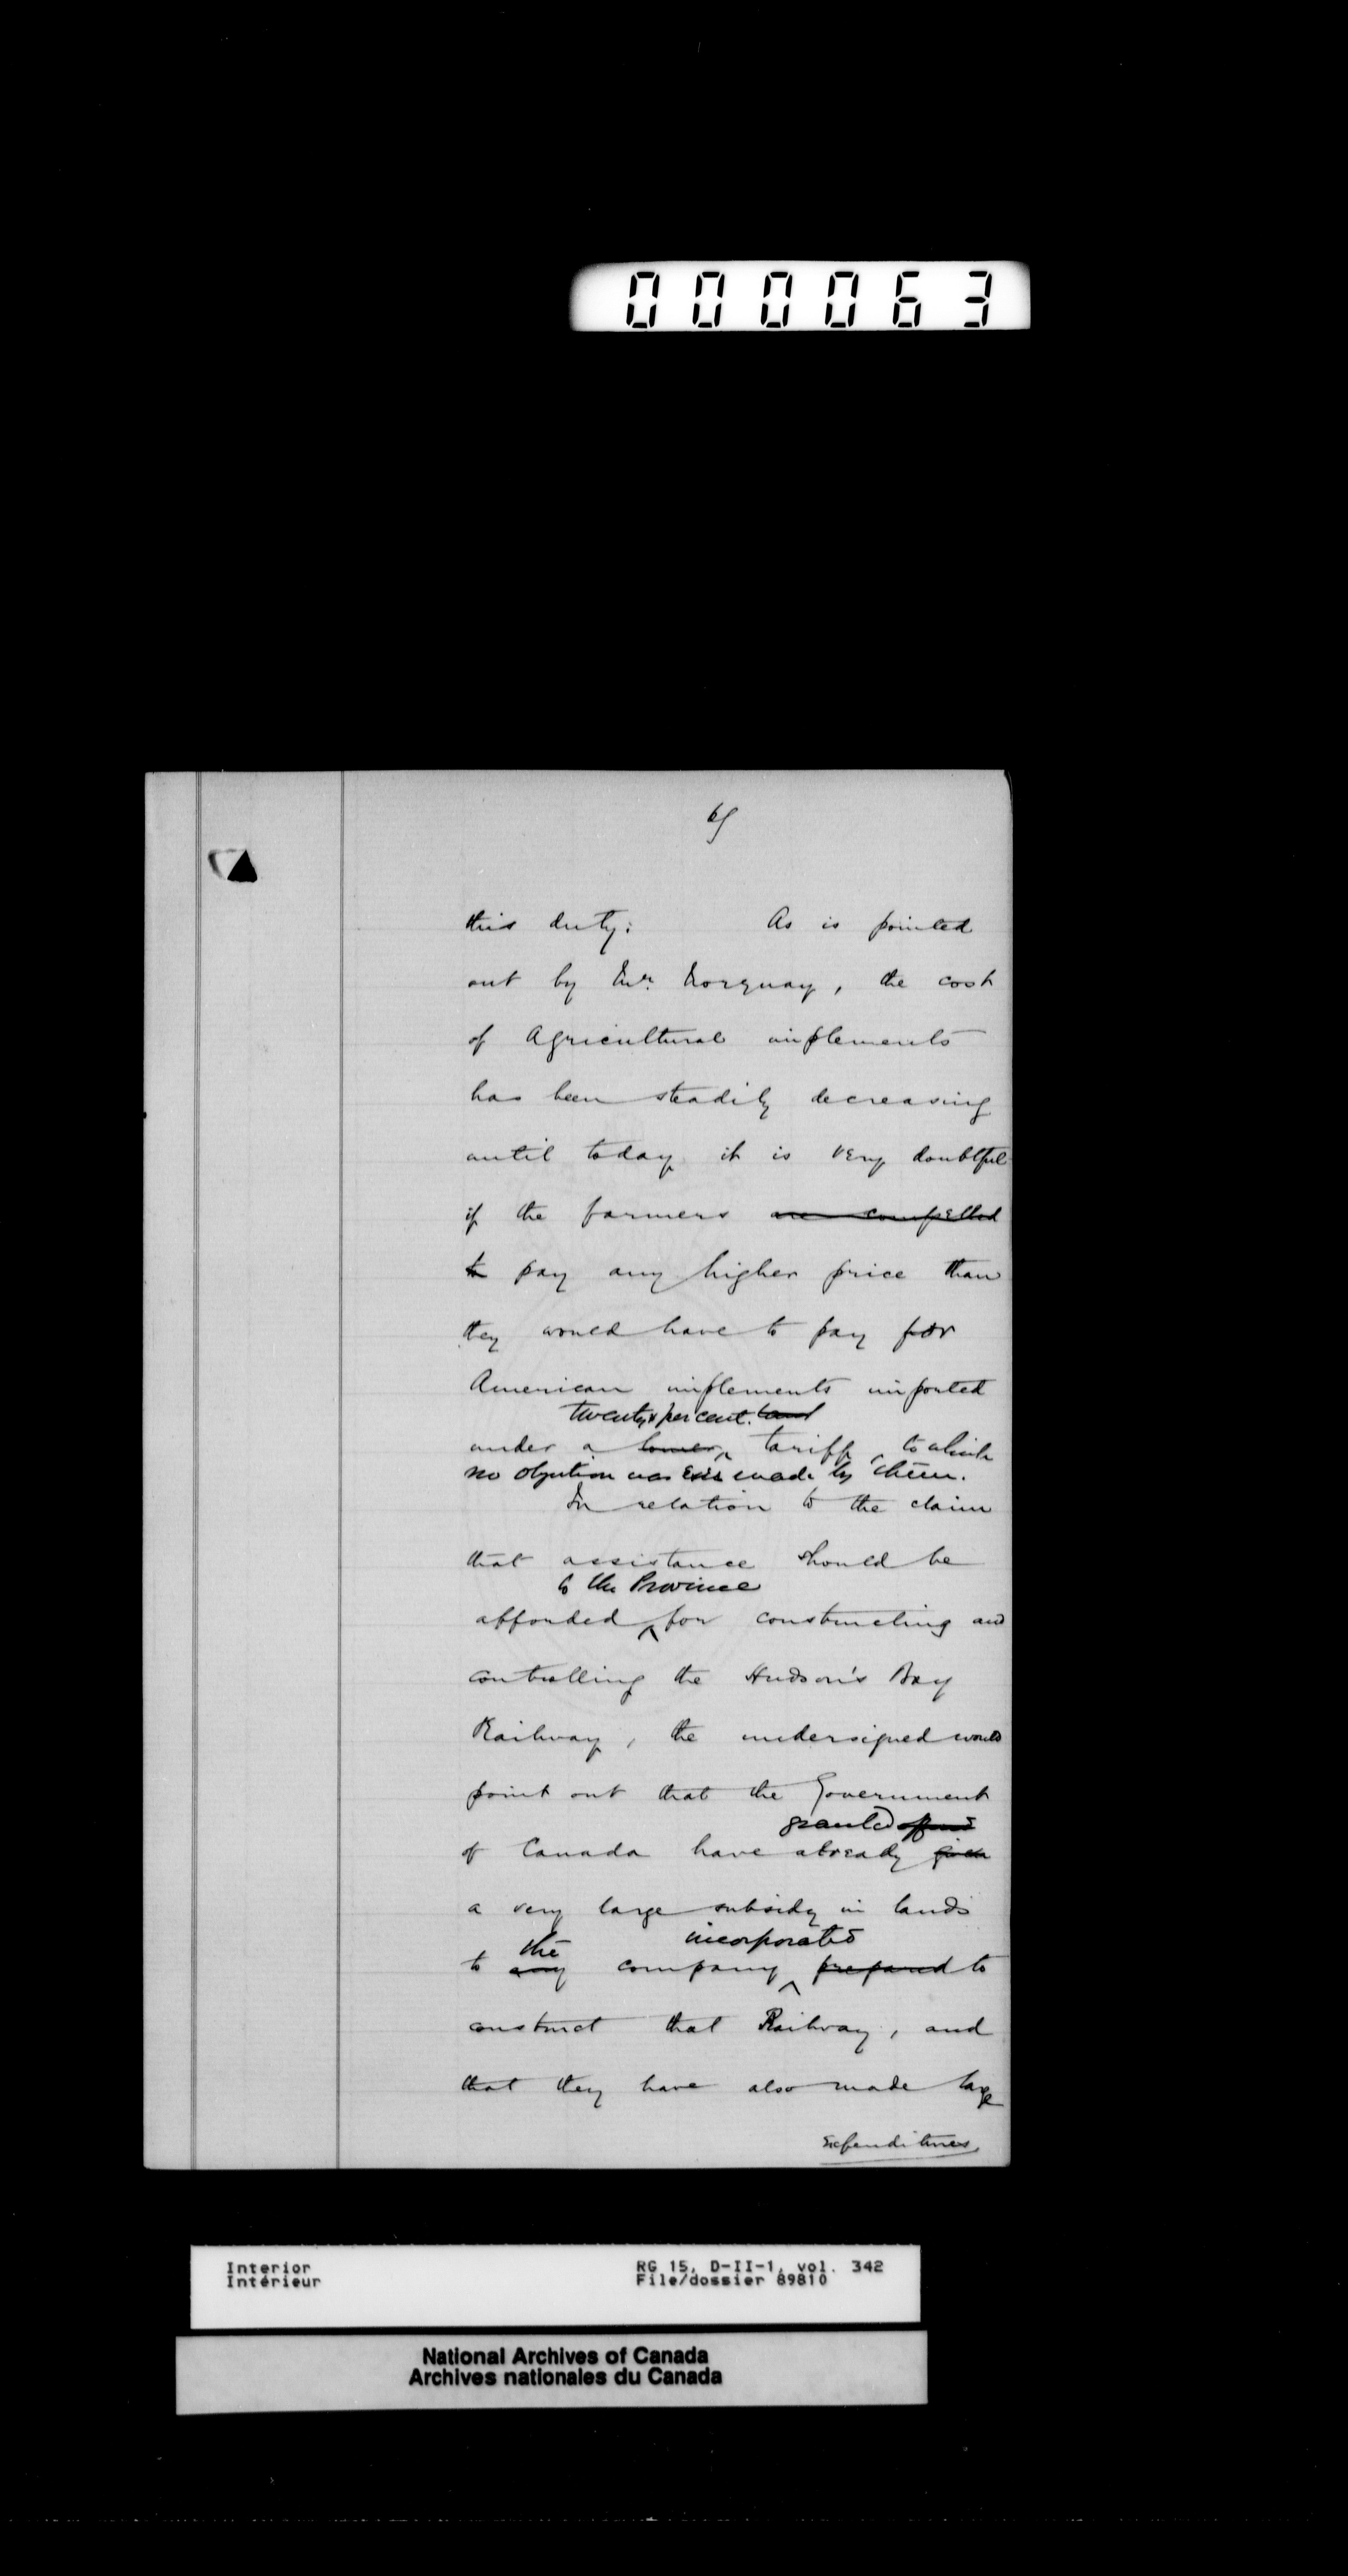 000063
this duty: As is pointed
out by Mr. Norquay, the cost
of Agricultural implements
has been steadily decreasing
until today it is very doubtful
if the farmers are compelled
to pay any higher price than
they would have to pay for
American implements imported
twenty per cent.
under a lower tariff, to which
no objection was made by them.
In relation to the claim
that assistance should be
to the Province
afforded for constructing and
controlling the Hudson's Bay
Railway, the undersigned would
point out that the Government
granted
of Canada have already given
a very large subsidy in lands
the incorporated
to any company prepared to
construct that Railway, and
that they have also made large
Expenditures
Interior
Intérieur
RG 15, D-II-1, vol. 342
File/dossier 89810
National Archives of Canada
Archives nationales du Canada